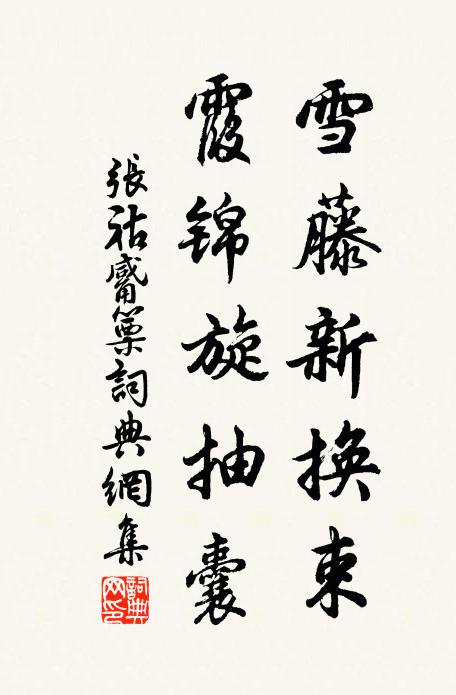 雪藤新換束
霞錦旋抽囊
張祜觱篥詞典網集
詞典網印